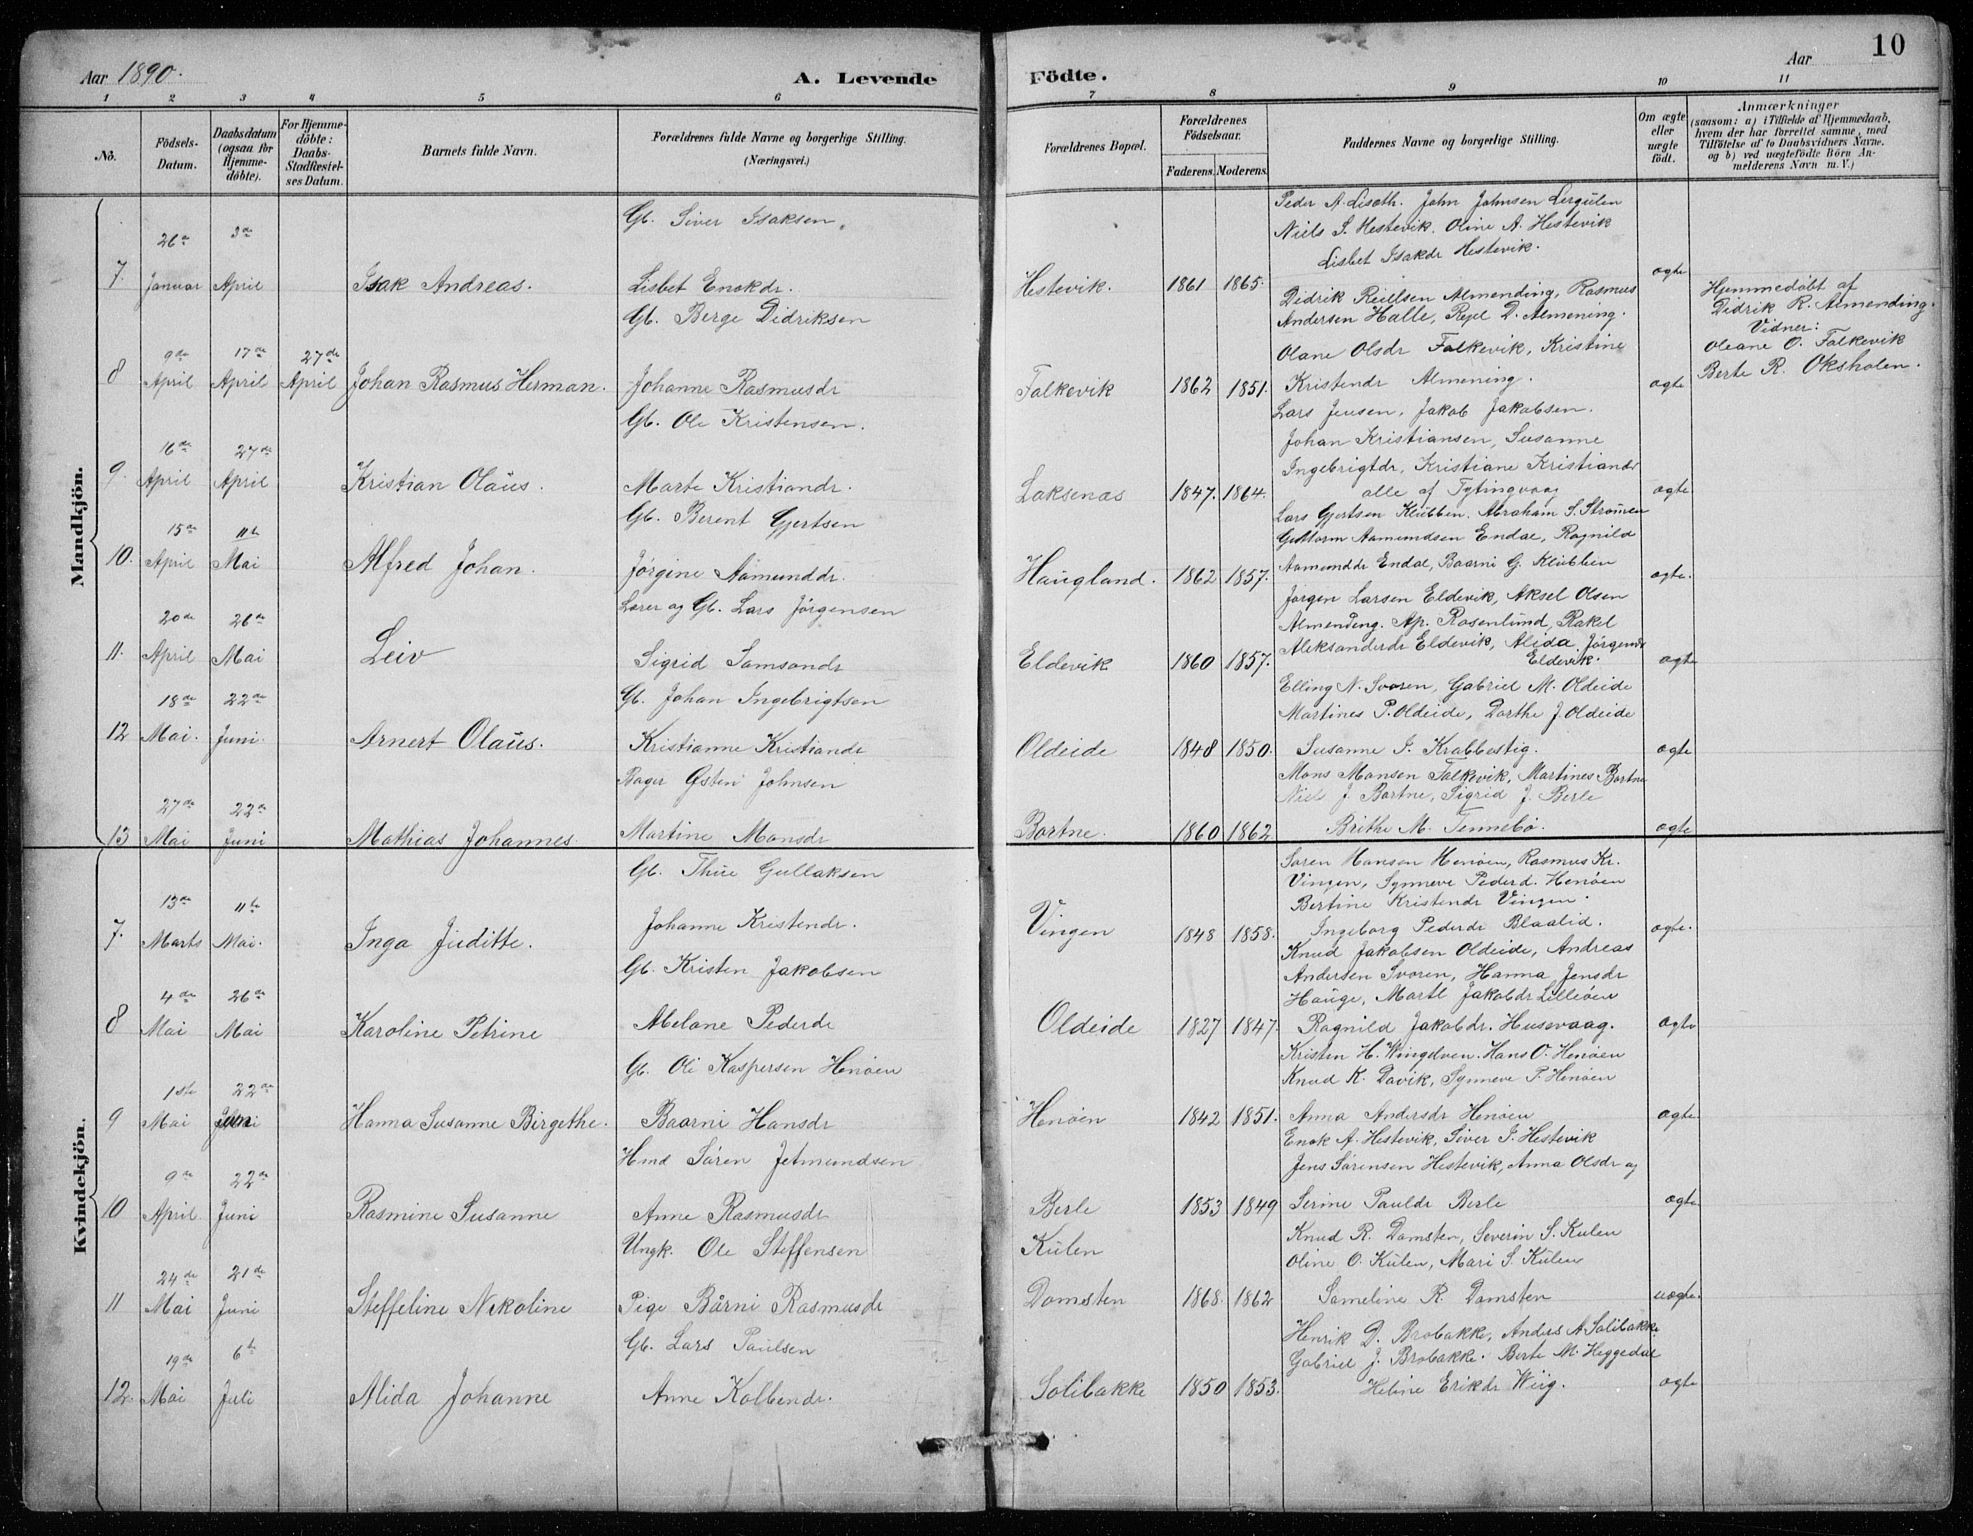 Aar 1890.
A. Levende
Födte.
Aar
10
1 2 3 4 5 6 7 8 9 10 11
No.
Födsels-
Datum.
Daabsdatum
(ogsaa for
Hjemme-
döbte).
For Hjemme-
döbte:
Daabs-
Stadfæstel-
ses Datum.
Barnets fulde Navn.
Forældrenes fulde Navne og borgerlige Stilling.
(Næringsvei.)
Forældrenes Bopæl.
Forældrenes
Födselsaar.
Faderens. Moderens.
Faddernes Navne og borgerlige Stilling.
Om ægte
eller
uægte
födt.
Anmærkninger
(saasom: a) i Tilfælde af Hjemmedaab,
hvem der har forrettet samme, med
Tilföielse af to Daabsvidners Navne.
og b) ved uægtefödte Börn An-
melderens Navn m. V.)
Mandkjön.
Gb. Siver Isaksen
Peder A. Liseth. John Johnsen Lergulen
26de 3de
Niels S. Hestevik. Oline A. Hestevik
Lisbet Isakdr Hestevik.
7. Januar April Isak Andreas. Lisbet Enokdr. Hestevik. 1861 1865. ægte
Gb. Berge Didriksen
Didrik ReiElsen Almending, Rasmus
Andersen Halle, Rejel D. Almening.
Hjemmedöbt af
Didrik R. Almending.
Vidner:
Oleane O. Falkevik
Berte R. Oksholen.
9de 17de 27de
Olane Olsdr Falkevik, Kristine
8 April April April Johan Rasmus Herman. Johanne Rasmusdr Falkevik 1862 1851. Kristendr Almening. ægte
Gb. Ole Kristensen.
Lars Jensen, Jakob Jakobsen.
Johan Kristiansen, Susanne
16de 27de
Ingebrigtdr, Kristiane Kristiandr
9. April April Kristian Olaus. Marte Kristiandr. Laksenæs 1847. 1864. alle af Tytingvaag ægte.
Gb. Berent Gjertsen
Lars Gjertsen Klubben. Abraham S. Strömen
15de 11te
Guttorm Aamundsen Endal, Ragnild
10. April Mai Alfred Johan. Jörgine Aamunddr. Haugland. 1862 1857. Aamunddr Endal, Baarni G. Klubben ægte.
Lærer og Gb. Lars Jörgensen
Jörgen Larsen Eldevik, Aksel Olsen
20de 26de
Almending. Ap. Rosenlund, Rakel
Aleksanderdr Eldevik, Alida Jörgendr
Eldevik.
11. April Mai Leiv Sigrid Samsondr Eldevik 1860 1857. ægte
18de 22de
Gb. Johan Ingebrigtsen
Elling N. Svoren, Gabriel M. Oldeide
Martines P. Oldeide, Dorthe J. Oldeide
12 Mai. Juni. Arnert Olaus. Kristianne Kristiandr Oldeide 1848 1850. Susanne I. Krabbestig. ægte
Bager Östen Johnsen
Mons Monsen Falkevik, Martines Bortne
27de 22de
Niel J Bortne, Sigrid J. Berle
13 Mai Juni Mathias Johannes. Martine Monsdr Bortne. 1860 1862 Brithe M. Tennebö. ægte
Kvindekjön.
Gb. Thue Gullaksen
Sören Hansen Henöen, Rasmus Kr.
Vingen, Synneve Pederd. Henöen
13de 11te
Bertine Kristendr Vingen.
7. Marts Mai. Inga Juditte. Johanne Kristendr. Vingen 1848 1858. Ingeborg Pederdr Blaalid. ægte.
Gb. Kristen Jakobsen
Knud Jakobsen Oldeide, Andreas
Andersen Svoren, Hanna Jensdr
4de 26de
Hauge, Martl Jakobdr Lilleöen
8 Mai Mai Karoline Petrine Abelone Pederdr Oldeide 1827 1847. Ragnild Jakobdr. Husevaag. ægte
Gb. Ole Kaspersen Henöen
Kristen H. Wingelven. Hans O. Henöen
1ste 22de
Knud K. Davik, Synneve P. Henöen
9 Mai Juni Hanna Susanne Birgethe. Baarni Hansdr Henöen 1842 1851. Anna Andersdr Henöen ægte
Hmd Sören Jetmundsen
Enok A. Hestevik, Siver I. Hestevik
9de 22de
Jens Sörensen Hestevik, Anna Olsdr og
10 April Juni Rasmine Susanne Anne Rasmusdr Berle 1853 1849 Serine Pauldr Berle ægte
Ungk. Ole Steffensen Kulen
Knud R. Domsten, Severin S. Kulen
24de 21de
Oline O. Kulen, Mari S. Kulen
11 Mai Juni Steffeline Nikoline Pige Bårni Rasmusdr Domsten 1868. 1862 Sameline R. Domsten uægte.
Gb. Lars Paulsen
Henrik D. Brobakke, Anders A Solibakke
19de 6te
Gabriel J. Brobakke. Berte M. Heggedal
12. Mai Juli Alida Johanne Anne Kolbendr. Solibakke 1850 1853. Heline Erikdr Wiig. ægte